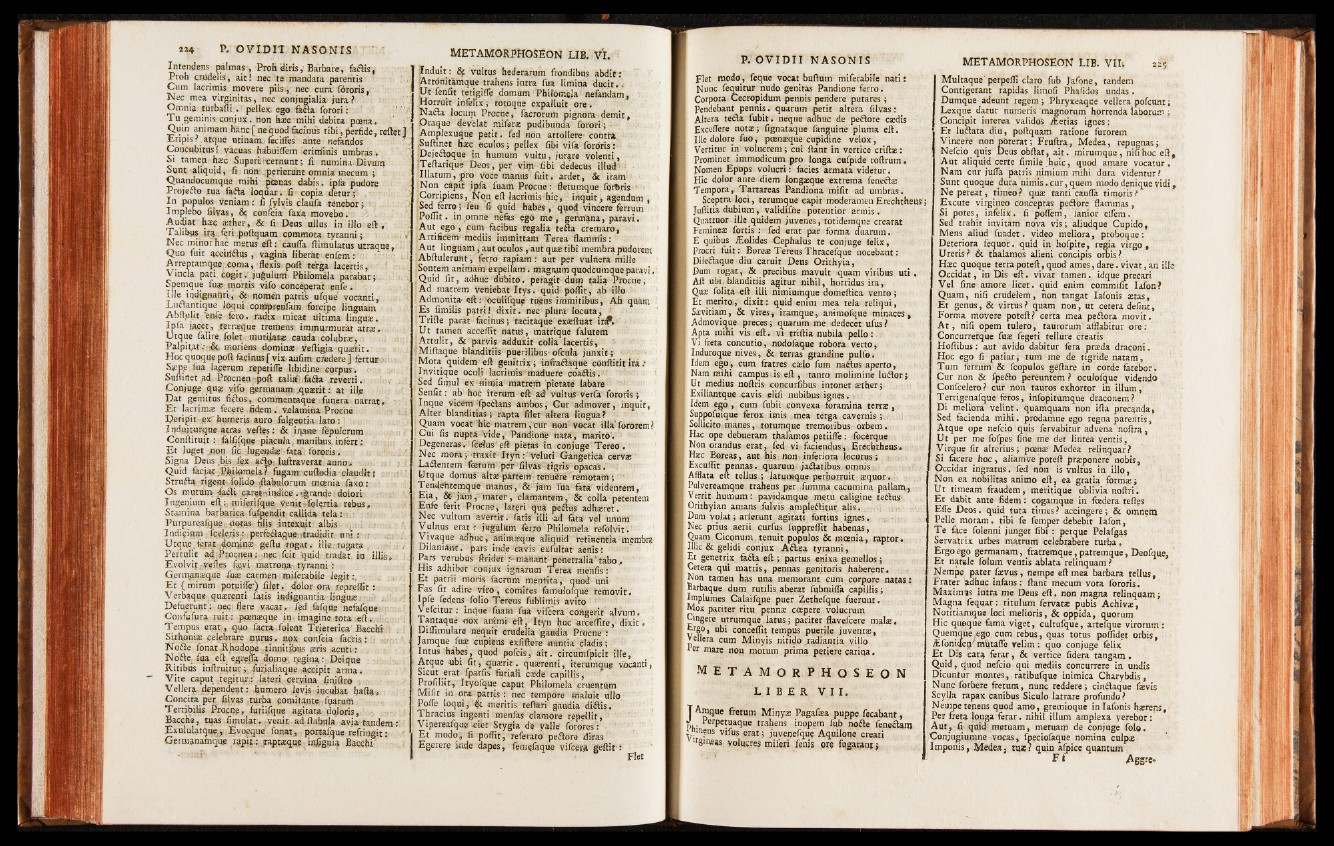 224 P. OVIDII NASONIS
Intendens palmas, Proh diris, Barbare, factis,
Proh crudelis, ait! nec te mandata parentis
Cum lacrimis movere piis, nec cura sororis,
Nec mea virginitas, nec conjugialia jura?
Omnia turbasti. pellex ego facta sorori:
Tu geminis conjux. non hæc mihi debita pœna.
Quin animam hanc [ne quod facinus tibi, perfide, restet]
Eripis? atque utinam fecisses ante nefandos
Concubitus! vacuas habuissem criminis umbras.
Si tamen hæc Superi cernunt; si numina Divum
Sunt aliquid, si non perierunt omnia mecum;
Quandocumque mihi pœnas dabis. ipsa pudore
Projecto tua facta loquar. si copia detur;
In populos veniam: si sylvis clausa tenebor;
Implebo silvas, & conscia saxa movebo.
Audiat hæc æther, & si Deus ullus in illo est.
Talibus ira feri postquam commota tyranni;
Nec minor hac metus est: caussa stimulatus utraque,
Quo fuit accinctus, vagina liberat ensem:
Arreptamque coma, flexis post terga lacertis,
Vincla pati cogit. jugulum Philomela parabat;
Spemque suæ mortis viso conceperat ense.
Ille indignanti, & nomen patris usque vocanti,
Luctantique loqui comprensam forcipe linguam
Abstulit ense fero. radix micat ultima linguæ.
Ipsa jacet, terræque tremens immurmurat atræ.
Utque salire solet mutilatæ cauda colubræ,
Palpitat: & moriens dominæ vestigia quærit.
Hoc quoque post facinus [vix ausim credere] fertur
Sæpe sua lacerum repetisse libidine corpus.
Sustinet ad Procnen post talia facta reverti.
Conjuge quæ viso germanam quærit: at ille
Dat gemitus fictos, commentaque funera narrat.
Et lacrimæ fecere fidem. velamina Procne
Deripit ex humeris auro fulgentia lato:
Induiturque atras vestes: & inane sepulcrum
Constituit: falsisque piacula manibus infert:
Et luget non sic lugendæ fata sororis.
Signa Deus bis sex acto lustraverat anno.
Quid faciat Philomela? fugam custodia claudit:
Structa rigent solido stabulorum mœnia saxo:
Os mutum facti caret indice. grande dolori
Ingenium est: miserisque venit solertia rebus.
Stamina barbarica suspendit callida tela:
Purpureasque notas filis intexuit albis
Indicium sceleris: perfectaque tradidit uni:
Utque ferat dominæ gestu rogat. ille rogata
Pertulit ad Procnen; nec scit quid tradat in illis.
Evolvit vestes sævi matrona tyranni:
Germanæque suæ carmen miserabile legit:
Et (mirum potuisse) silet. dolor ora repressit:
Verbaque quærenti satis indignantia linguæ
Defuerunt: nec flere vacat. sed fasque nefasque
Confusura ruit: pœnæque in imagine tota est.
Tempus erat, quo sacra solent Trieterica Bacchi
Sithoniæ celebrare nurus. nox conscia sacris:
Nocte sonat Rhodope tinnitibus æris acuti:
Nocte sua est egressa domo regina: Deique
Ritibus instruitur; furialiaque accipit arma.
Vite caput tegitur: lateri cervina sinistro
Vellera dependent: humero levis incubat hasta.
Concita per silvas turba comitante suarum
Terribilis Procne, furiisque agitata doloris,
Bacche, tuas simulat. venit ad stabula avia tandem:
Exululatque, Evoeque sonat, portasque refringit:
Germanamque rapit: raptæque insignia Bacchi
METAMORPHOSEON LIB. VI.
Induit: & vultus hederarum frondibus abdit:
Attonitamque trahens intra sua limina ducit.
Ut sensit tetigisse domum Philomela nefandam,
Horruit infelix, totoque expalluit ore.
Nacta locum Procne, sacrorum pignora demit,
Oraque develat miseræ pudibunda sorori;
Amplexuque petit. sed non attollere contra
Sustinet hæc oculos; pellex sibi visa sororis:
Dejectoque in humum vultu, jurare volenti,
Testarique Deos, per vim sibi dedecus illud
Illatum, pro voce manus fuit. ardet, & iram
Non capit ipsa suam Procne: fletumque sororis
Corripiens, Non est lacrimis hic, inquit, agendum,
Sed ferro: seu si quid habes, quod vincere ferrum
Possit. in omne nefas ego me, germana, paravi.
Aut ego, cum facibus regalia tecta cremaro,
Artificem mediis immittam Terea flammis:
Aut linguam, aut oculos, aut quæ tibi membra pudorem
Abstulerunt, ferro rapiam: aut per vulnera mille
Sontem animam expellam. magnum quodcumque paravi.
Quid sit, adhuc dubito. peragit dum talia Procne;
Ad matrem veniebat Itys. quid possit, ab illo
Admonita est: oculisque tuens immitibus, Ah quam
Es similis patri! dixit. nec plura locuta,
Triste parat facinus; tacitaque exæstuat ira.
Ut tamen accessit natus, matrique salutem
Attulit, & parvis adduxit colla lacertis,
Mistaque blanditiis puerilibus oscula junxit;
Mota quidem est genitrix; infractaque constitit ira:
Invitique oculi lacrimis maduere coactis.
Sed simul ex nimia matrem pietate labare
Sensit: ab hoc iterum est ad vultus versa sororis;
Inque vicem spectans ambos, Cur admovet, inquit,
Alter blanditias; rapta silet altera lingua?
Quam vocat hic matrem, cur non vocat illa sororem?
Cui sis nupta vide, Pandione nata, marito.
Degeneras. scelus est pietas in conjuge Tereo.
Nec mora; traxit Ityn: veluti Gangetica cervæ
Lactentem fœtum per silvas tigris opacas.
Utque domus altæ partem tenuere remotam;
Tendentemque manus, & jam sua fata videntem,
Eia, & jam, mater, clamantem, & colla petentem
Ense ferit Procne, lateri qua pectus adhæret.
Nec vultum avertit. satis illi ad fata vel unum
Vulnus erat: jugulum ferro Philomela resolvit.
Vivaque adhuc, animæque aliquid retinentia membra
Dilaniant. pars inde cavis exsultat aenis:
Pars verubus stridet: manant penetralia tabo.
His adhibet conjux ignarum Terea mensis:
Et patrii moris sacrum mentita, quod uni
Fas sit adire viro, comites famulosque removit.
Ipse sedens solio Tereus sublimis avito
Vescitur: inque suam sua viscera congerit alvum.
Tantaque nox animi est, Ityn huc arcessite, dixit.
Dissimulare nequit crudelia gaudia Procne:
Jamque suæ cupiens existere nuntia cladis;
Intus habes, quod poscis, ait. circumspicit ille,
Atque ubi sit, quærit. quærenti, iterumque vocanti,
Sicut erat sparsis furiali cæde capillis,
Prosiliit, Ityosque caput Philomela cruentum
Misit in ora patris: nec tempore maluit ullo
Posse loqui, & meritis testari gaudia dictis.
Thracius ingenti mensas clamore repellit,
Vipereasque ciet Stygia de valle sorores:
Et modo, si possit, reserato pectore diras
Egerere inde dapes, semesaque viscera gestit:
Flet
P. OVIDII NASONIS
Flet modo, seque vocat bustum miserabile nati:
Nunc sequitur nudo genitas Pandione ferro.
Corpora Cecropidum pennis pendere putares;
Pendebant pennis. quarum petit altera silvas:
Altera tecta subit. neque adhuc de pectore cædis
Excessere notæ; signataque sanguine pluma est.
Ille dolore suo, pœnæque cupidine velox,
Vertitur in volucrem; cui stant in vertice cristæ:
Prominet immodicum pro longa cuspide rostrum.
Nomen Epops volucri: facies armata videtur.
Hic dolor ante diem longæque extrema senectæ
Tempora, Tartareas Pandiona misit ad umbras.
Sceptra loci, rerumque capit moderamen Erechtheus;
Justitia dubium, validisne potentior armis.
Quatuor ille quidem juvenes, totidemque crearat
Femineæ sortis: sed erat par forma duarum.
E quibus Æolides Cephalus te conjuge felix,
Procri fuit: Boreæ Tereus Thracesque nocebant:
Dilectaque diu caruit Deus Orithyia,
Dum rogat, & precibus mavult quam viribus uti.
Ast ubi blanditiis agitur nihil, horridus ira,
Quæ solita est illi nimiumque domestica vento;
Et merito, dixit: quid enim mea tela reliqui,
Sævitiam, & vires, iramque, animosque minaces,
Admovique preces; quarum me dedecet usus?
Apta mihi vis est. vi tristia nubila pello:
Vi freta concutio, nodosaque robora verto,
Induroque nives, & terras grandine pulso.
Idem ego, cum fratres cælo sum nactus aperto,
Nam mihi campus is est, tanto molimine luctor;
Ut medius nostris concursibus intonet æther;
Exiliantque cavis elisi nubibus ignes.
Idem ego, cum subii convexa foramina terræ,
Supposuique ferox imis mea terga cavernis;
Sollicito manes, totumque tremoribus orbem.
Hac ope debueram thalamos petiisse: socerque
Non orandus erat, sed vi faciendus, Erechtheus.
Hæc Boreas, aut his non inferiora locutus;
Excussit pennas. quarum jactatibus omnis
Afflata est tellus; latumque perhorruit æquor.
Pulvereamque trahens per summa cacumina pallam,
Verrit humum: pavidamque metu caligine tectus
Orithyian amans fulvis amplectitur alis.
Dum volat; arserunt agitati fortius ignes.
Nec prius aerii cursus suppressit habenas,
Quam Ciconum tenuit populos & mœnia, raptor.
Illic & gelidi conjux Actæa tyranni,
Et genetrix facta est; partus enixa gemellos;
Cetera qui matris, pennas genitoris haberent.
Non tamen has una memorant cum corpore natas:
Barbaque dum rutilis aberat subnissa capillis;
Implumes Calaisque puer Zethesque fuerunt.
Mox pariter ritu pennæ cœpere volucrum
Cingere utrumque latus; pariter flavescere malæ.
Ergo, ubi concessit tempus puerile juventæ,
Vellera cum Minyis nitido radiantia villo
Per mare non motum prima petiere carina.
METAMORPHOSEON
LIBER VII.
JAmque fretum Minyæ Pagasæa puppe secabant,
Perpetuaque trahens inopem sub nocte senectam
Phineus visus erat; juvenesque Aquilone creati
Virgineas volucres miseri senis ore fugarant;
METAMORPHOSEON LIB. VII. 225
Multaque perpessi claro sub Jasone, tandem
Contigerant rapidas limosi Phasidos undas.
Dumque adeunt regem; Phryxeaque vellera poscunt;
Lexque datur numeris magnorum horrenda laborum;
Concipit interea validos Æetias ignes:
Et luctata diu, postquam ratione furorem
Vincere non poterat; Frustra, Medea, repugnas;
Nescio quis Deus obstat, ait. mirumque, nisi hoc est,
Aut aliquid certe simile huic, quod amare vocatur.
Nam cur jussa patris nimium mihi dura videntur?
Sunt quoque dura nimis. cur, quem modo denique vidi,
Ne pereat, timeo? quæ tanti caussa timoris?
Excute virgineo conceptas pectore flammas,
Si potes, infelix. si possem, sanior essem.
Sed trahit invitam nova vis; aliudque Cupido,
Mens aliud suadet. video meliora, proboque:
Deteriora sequor. quid in hospite, regia virgo,
Ureris? & thalamos alieni concipis orbis?
Hæc quoque terra potest, quod ames, dare. vivat, an ille
Occidat, in Dis est. vivat tamen. idque precari
Vel sine amore licet. quid enim commisit Iason?
Quam, nisi crudelem, non tangat Iasonis ætas,
Et genus, & virtus? quam non, ut cetera desint,
Forma movere potest? certa mea pectora movit.
At, nisi opem tulero, taurorum afflabitur ore:
Concurretque suæ segeti tellure creatis
Hostibus: aut avido dabitur fera præda draconi.
Hoc ego si patiar, tum me de tigride natam,
Tum ferrum & scopulos gestare in corde fatebor.
Cur non & specto pereuntem? oculosque videndo
Conscelero? cur non tauros exhortor in illum,
Terrigenasque feros, insopitumque draconem?
Di meliora velint. quamquam non ista precanda,
Sed facienda mihi. prodamne ego regna parentis,
Atque ope nescio quis servabitur advena nostra,
Ut per me sospes sine me det lintea ventis,
Virque sit alterius; pœnæ Medea relinquar?
Si facere hoc, aliamve potest præponere nobis,
Occidat ingratus. sed non is vultus in illo,
Non ea nobilitas animo est, ea gratia formæ;
Ut timeam fraudem, meritique oblivia nostri.
Et dabit ante fidem: cogamque in fœdera testes
Esse Deos. quid tuta times? accingere; & omnem
Pelle moram. tibi se semper debebit Iason,
Te face solenni junget sibi: perque Pelasgas
Servatrix urbes matrum celebrabere turba.
Ergo ego germanam, fratremque, patremque, Deosque,
Et natale solum ventis ablata relinquam?
Nempe pater sævus, nempe est mea barbara tellus,
Frater adhuc infans: stant mecum vota sororis.
Maximus intra me Deus est. non magna relinquam;
Magna sequar: titulum servatæ pubis Achivæ,
Notitiamque loci melioris, & oppida, quorum
Hic quoque fama viget, cultusque, artesque virorum:
Quemque ego cum rebus, quas totus possidet orbis,
Æsoniden mutasse velim: quo conjuge felix
Et Dis cara ferar, & vertice sidera tangam.
Quid, quod nescio qui mediis concurrere in undis
Dicuntur montes, ratibusque inimica Charybdis,
Nunc sorbere fretum, nunc reddere; cinctaque sævis
Scylla rapax canibus Siculo latrare profundo?
Nempe tenens quod amo, gremioque in Iasonis hærens,
Per freta longa ferar. nihil illum amplexa verebor:
Aut, si quid metuam, metuam de conjuge solo.
Conjugiumne vocas, speciosaque nomina culpæ
Imponis, Medea, tuæ? quin aspice quantum
Ff Aggre-